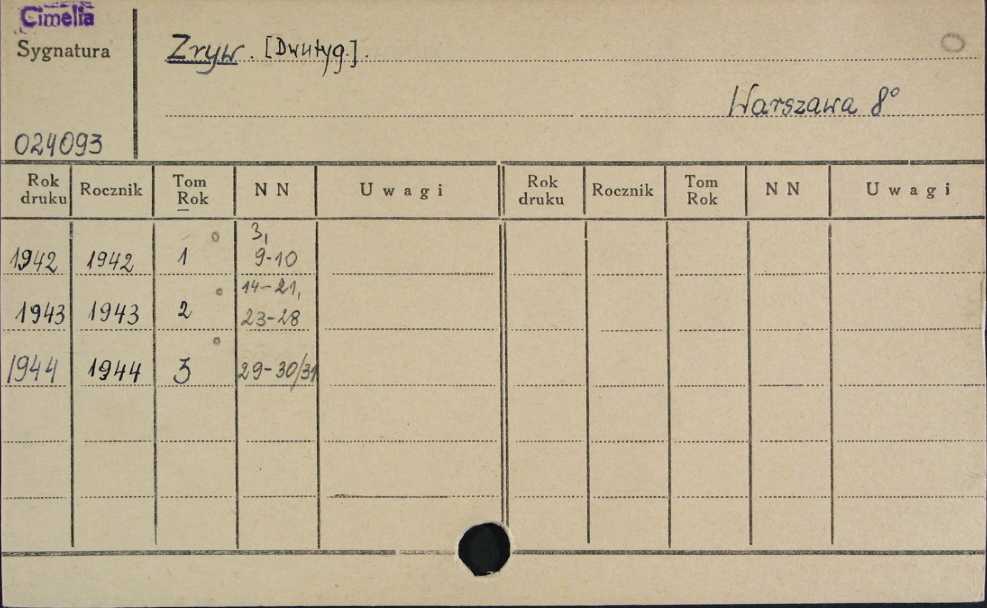 Cimelia
Sygnatura
Zryw. [Dwutyg.].
Warszawa 8°
024093
Rok druku Rocznik Tom Rok NN Uwagi Rok druku Rocznik Tom Rok NN Uwagi
3,
1942 1942 1 9-10
14-21,
1943 1943 2 23-28
1944 1944 3 29-30/31